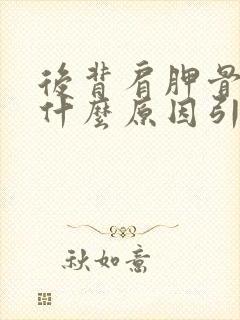 後背肩胛骨
什麼原因引
秋如意